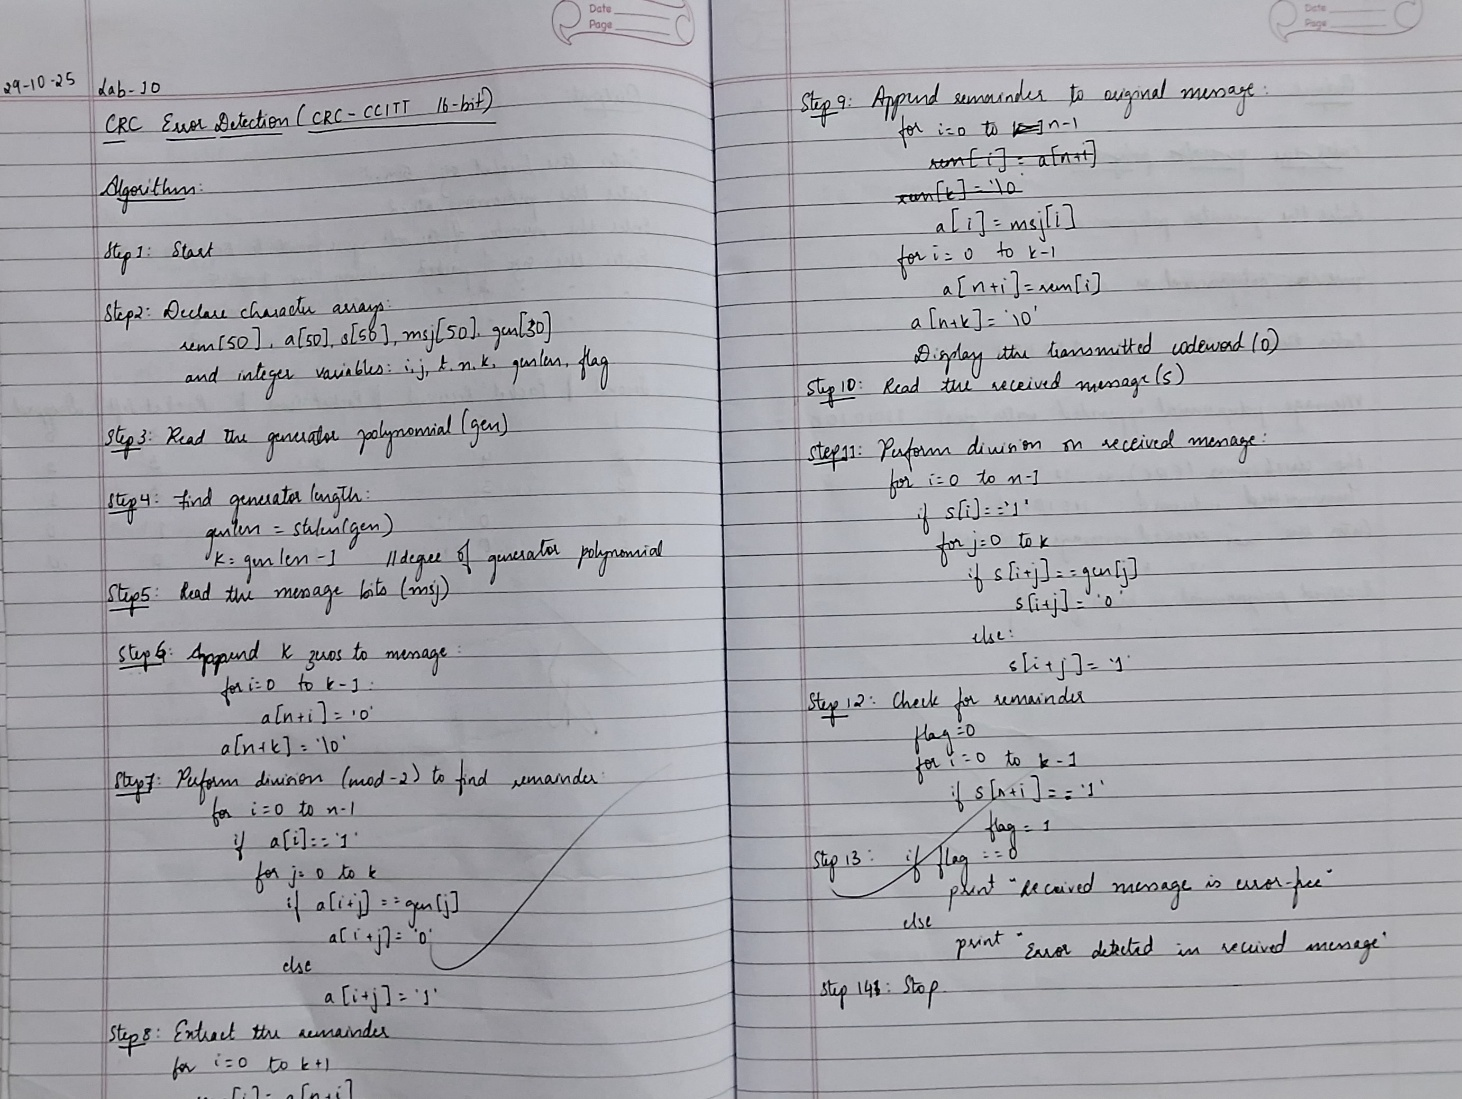 Date
Page
29-10-25
Lab-10
CRC Error Detection (CRC-CCITT 16-bit)
Algorithm:
Step 1: Start
Step2: Declare character arrays:
rem[50], a[50], s[50], msj[50], gen[30]
and integer variables: i,j, t, n, k, genlen, flag
Step 3: Read the generator polynomial (gen)
Step 4: find generator length:
genlen = strlen(gen)
k = genlen-1 //degree of generator polynomial
Step5: Read the message bits (msj)
Step 6: Append k zeros to message:
for i=0 to k-1:
a[n+i] = '0'
a[n+k] = '\0'
Step7: Perform division (mod-2) to find remainder:
for i=0 to n-1
if a[i]=='1'
for j=0 to k
if a[i+j]==gen[j]
a[i+j]='0'
else
a[i+j]='1'
Step8: Extract the remainder
for i=0 to k+1
a[n+i]
Date
Page
Step 9: Append remainder to original message:
for i=0 to n-1
rem[i] = a[n+i]
rem[k] = '\0'
a[i] = msj[i]
for i=0 to k-1
a[n+i]=rem[i]
a[n+k]='\0'
Display the transmitted codeword (0)
Step 10: Read the received message(s)
Step11: Perform division on received message:
for i=0 to n-1
if s[i]=='1'
for j=0 to k
if s[i+j]==gen[j]
s[i+j]='0'
else:
s[i+j]='1'
Step 12: Check for remainder
flag=0
for i=0 to k-1
if s[n+i]=='1'
flag = 1
Step 13: if flag ==0
print "Received message is error-free"
else
print "Error detected in received message"
Step 14: Stop.